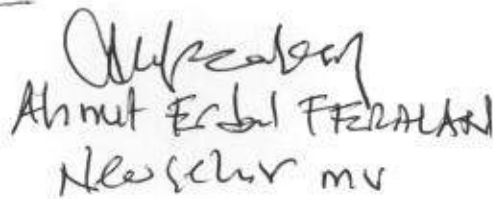 Ahmet Erdal FERALAN
Nevşehir mv